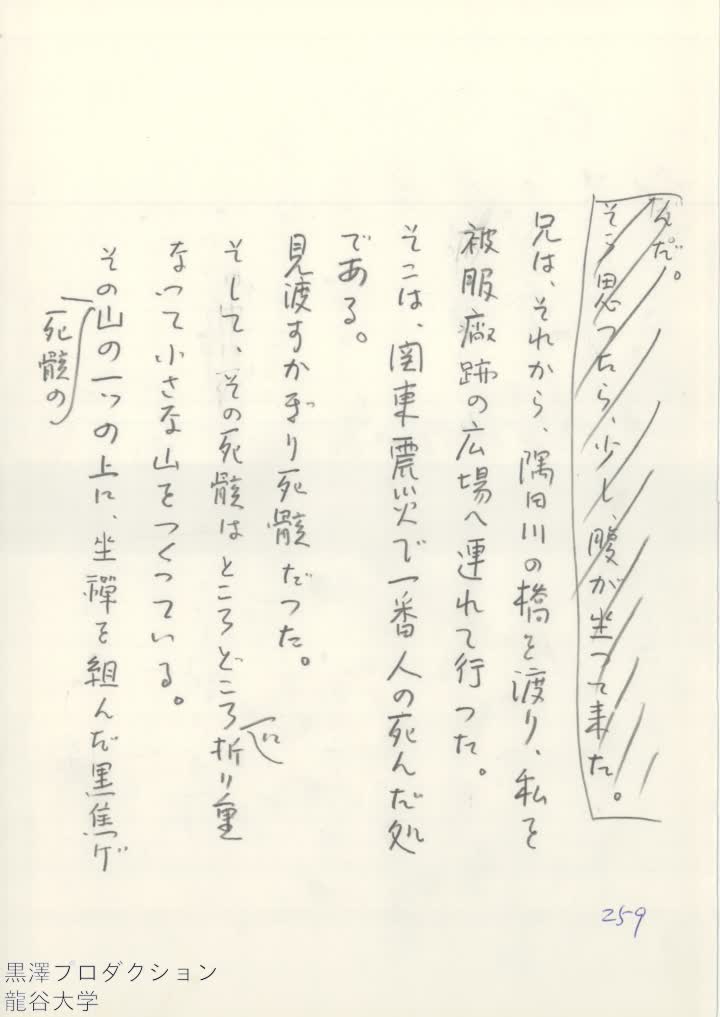 んだ。
そう思つたら、少し、腹が坐つて来た。
兄は、それから、隅田川の橋を渡り、私を
被服廠跡の広場へ連れて行つた。
そこは、関東震災で一番人の死んだ処
である。
見渡すかぎり死骸だつた。
そして、その死骸はところどころに折り重
なつて小さな山をつくつている。
その山の一つの上に、坐禪を組んだ黒焦げ
死骸の
259
黒澤プロダクション
龍谷大学